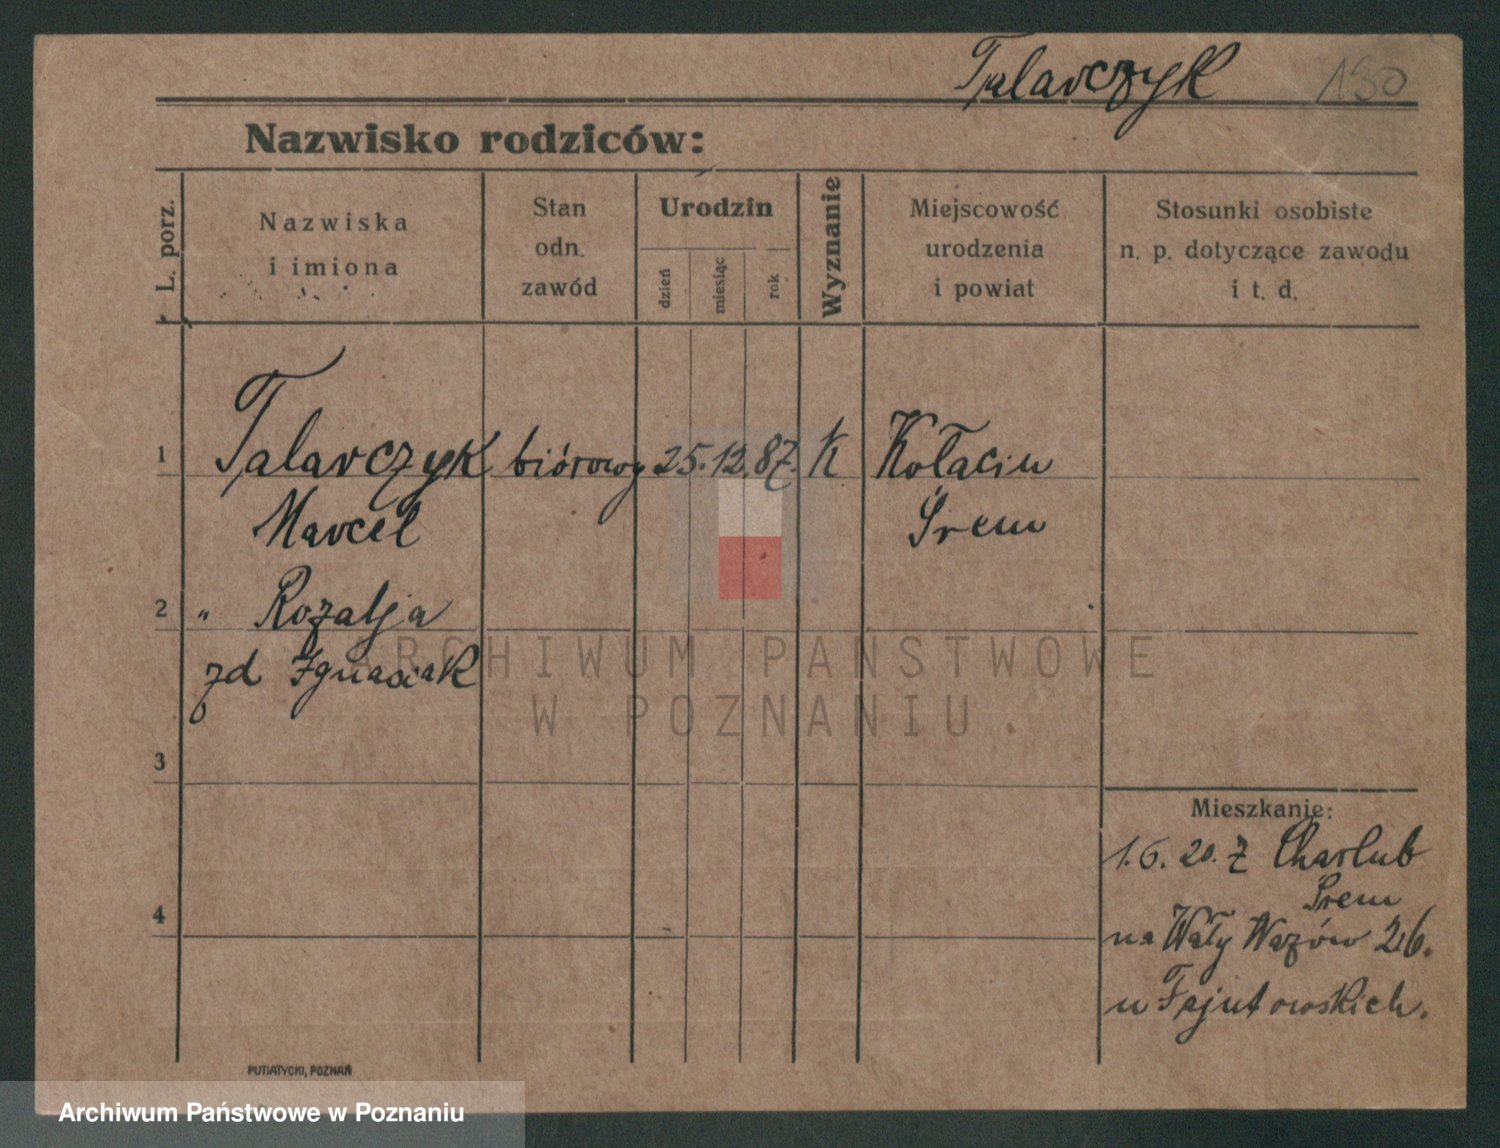 Talarczyk 130
Nazwisko rodziców:
L. porz.
Nazwiska
i imiona
Stan
odn.
zawód
Urodzin
dzień
miesiąc
rok
Wyznanie
Miejscowość
urodzenia
i powiat
Stosunki osobiste
n. p. dotyczące zawodu
i t. d.
1 Talarczyk biórowy 25. 12. 87. K Kołacin
Marcel Śrem
2 " Rozalja
zd Ignasiak
3
4
Mieszkanie:
1. 6. 20. z Charlub
Śrem
na Wały Wazów 26.
u
PUTIATYCKI, POZNAŃ
ARCHIWUM PAŃSTWOWE
W POZNANIU
Archiwum Państwowe w Poznaniu